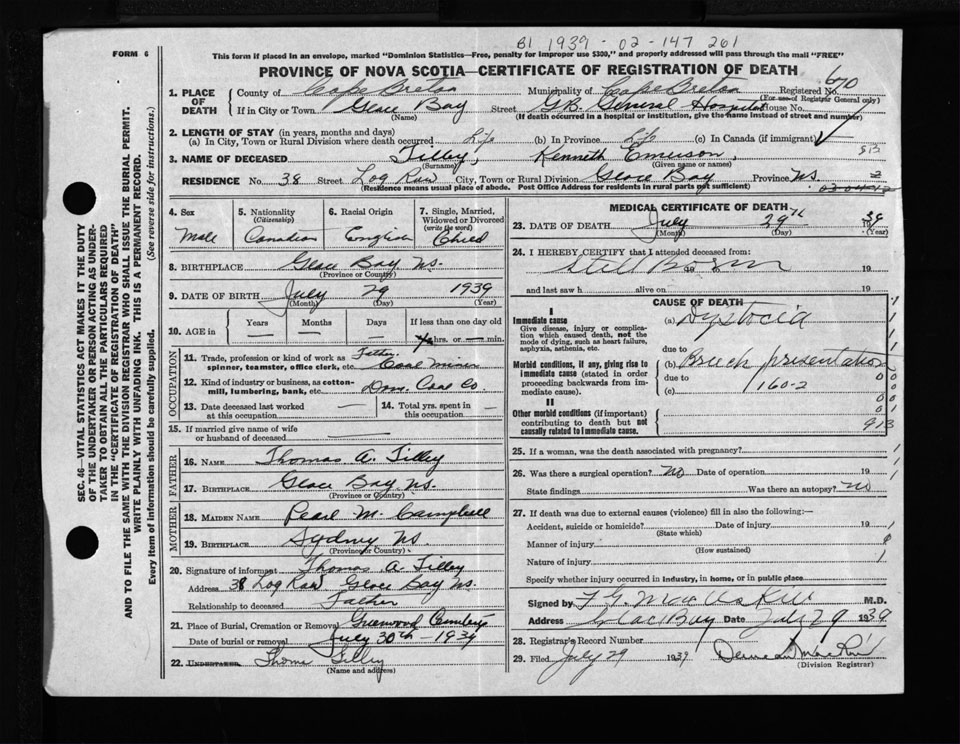 B1 1939-02-147 261
FORM 6
This form if placed in an envelope, marked "Dominion Statistics—Free, penalty for improper use $300," and properly addressed will pass through the mail "FREE"
PROVINCE OF NOVA SCOTIA—CERTIFICATE OF REGISTRATION OF DEATH
1. PLACE OF DEATH
County of Cape Breton Municipality of Cape Breton Registered No. 670
(For use of Registrar General only)
If in City or Town Glace Bay Street G.B. General Hospital House No.
(Name) (If death occurred in a hospital or institution, give the name instead of street and number)
2. LENGTH OF STAY (in years, months and days)
(a) In City, Town or Rural Division where death occurred Life (b) In Province Life (c) In Canada (if immigrant)
3. NAME OF DECEASED Tilley, Kenneth Emerson,
(Surname) (Given name or names)
RESIDENCE No. 38 Street Log Row City, Town or Rural Division Glace Bay Province NS.
(Residence means usual place of abode. Post Office Address for residents in rural parts not sufficient)
4. Sex Male
5. Nationality (Citizenship) Canadian
6. Racial Origin English
7. Single, Married, Widowed or Divorced (write the word) Child
8. BIRTHPLACE Glace Bay NS.
(Province or Country)
9. DATE OF BIRTH July 29 1939
(Month) (Day) (Year)
10. AGE in Years Months Days If less than one day old
hrs. or min.
OCCUPATION
11. Trade, profession or kind of work as spinner, teamster, office clerk, etc. Father Coal miner
12. Kind of industry or business, as cotton-mill, lumbering, bank, etc. Dom. Coal Co
13. Date deceased last worked at this occupation
14. Total yrs. spent in this occupation
15. If married give name of wife or husband of deceased
FATHER
16. NAME Thomas A. Tilley
17. BIRTHPLACE Glace Bay NS.
(Province or Country)
MOTHER
18. MAIDEN NAME Pearl M. Campbell
19. BIRTHPLACE Sydney NS
(Province or Country)
20. Signature of informant Thomas A. Tilley
Address 38 Log Row Glace Bay NS.
Relationship to deceased Father
21. Place of Burial, Cremation or Removal Greenwood Cemetery
Date of burial or removal July 30th - 1939
22. UNDERTAKER Thomas Tilley
(Name and address)
MEDICAL CERTIFICATE OF DEATH
23. DATE OF DEATH July 29th 1939
(Month) (Day) (Year)
24. I HEREBY CERTIFY that I attended deceased from:
Still Born 19
and last saw h alive on 19
CAUSE OF DEATH
I
Immediate cause (a) Dystocia
Give disease, injury or complication which caused death, not the mode of dying, such as heart failure, asphyxia, asthenia, etc.
due to
Morbid conditions, if any, giving rise to immediate cause (stated in order proceeding backwards from immediate cause).
(b) Breech presentation
due to
(c) 160-2
II
Other morbid conditions (if important) contributing to death but not causally related to immediate cause.
913
25. If a woman, was the death associated with pregnancy?
26. Was there a surgical operation? No Date of operation 19
State findings Was there an autopsy? no
27. If death was due to external causes (violence) fill in also the following:—
Accident, suicide or homicide? Date of injury 19
(State which)
Manner of injury
(How sustained)
Nature of injury
Specify whether injury occurred in industry, in home, or in public place
Signed by M.D.
Address Glace Bay Date July 29 1939
28. Registrar's Record Number
29. Filed July 29 1939
(Division Registrar)
SEC. 46—VITAL STATISTICS ACT MAKES IT THE DUTY
OF THE UNDERTAKER OR PERSON ACTING AS UNDER-
TAKER TO OBTAIN ALL THE PARTICULARS REQUIRED
IN THE "CERTIFICATE OF REGISTRATION OF DEATH"
AND TO FILE THE SAME WITH THE DIVISION REGISTRAR WHO SHALL ISSUE THE BURIAL PERMIT.
WRITE PLAINLY WITH UNFADING INK. THIS IS A PERMANENT RECORD.
Every item of information should be carefully supplied. (See reverse side for instructions.)